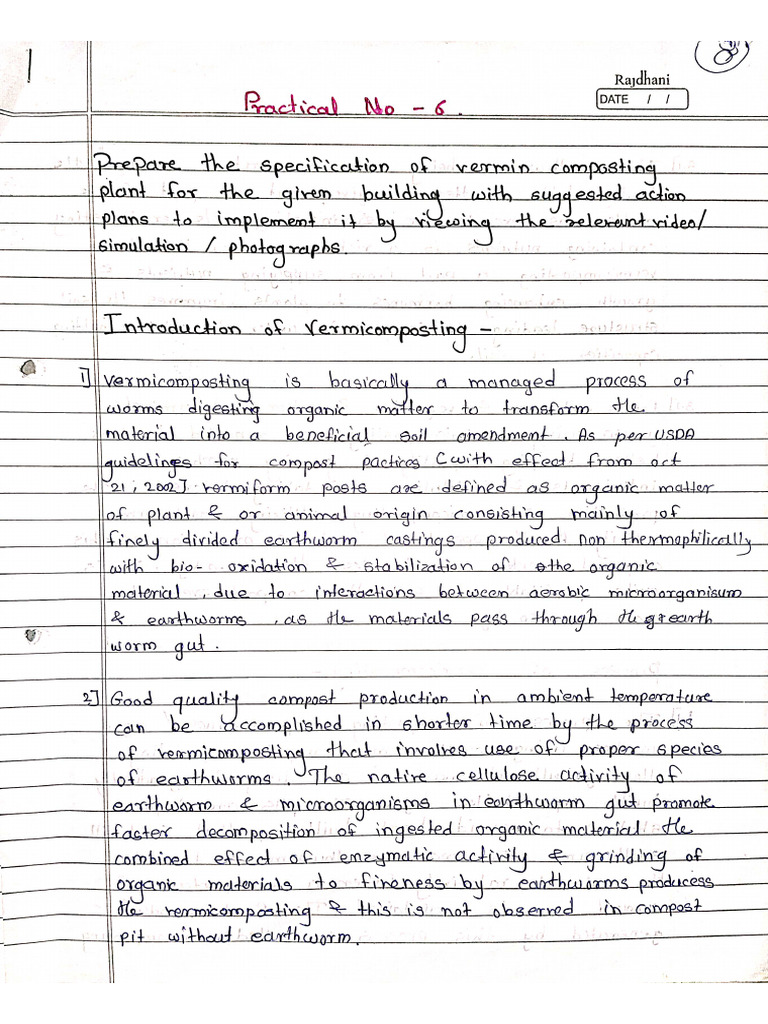 1
8
Rajdhani
DATE / /
Practical No - 6.
Prepare the specification of vermin composting
plant for the given building with suggested action
plans to implement it by viewing the relevant video/
simulation / photographs.
Introduction of Vermicomposting -
1] Vermicomposting is basically a managed process of
worms digesting organic matter to transform the
material into a beneficial soil amendment. As per USDA
guidelines for compost pactices C with effect from oct
21, 2002] vermiform posts are defined as organic matter
of plant & or animal origin consisting mainly of
finely divided earthworm castings produced non thermophilically
with bio- oxidation & stabilization of the organic
material, due to interactions between aerobic microorganisum
& earthworms, as the materials pass through the earth
worm gut.
2] Good quality compost production in ambient temperature
can be accomplished in shorter time by the process
of vermicomposting that involves use of proper species
of earthworms. The native cellulose activity of
earthworm & microorganisms in earthworm gut promote
faster decomposition of ingested organic material the
combined effect of enzymatic activity & grinding of
organic materials to fineness by earthworms producess
the vermicomposting & this is not observed in compost
pit without earthworm.